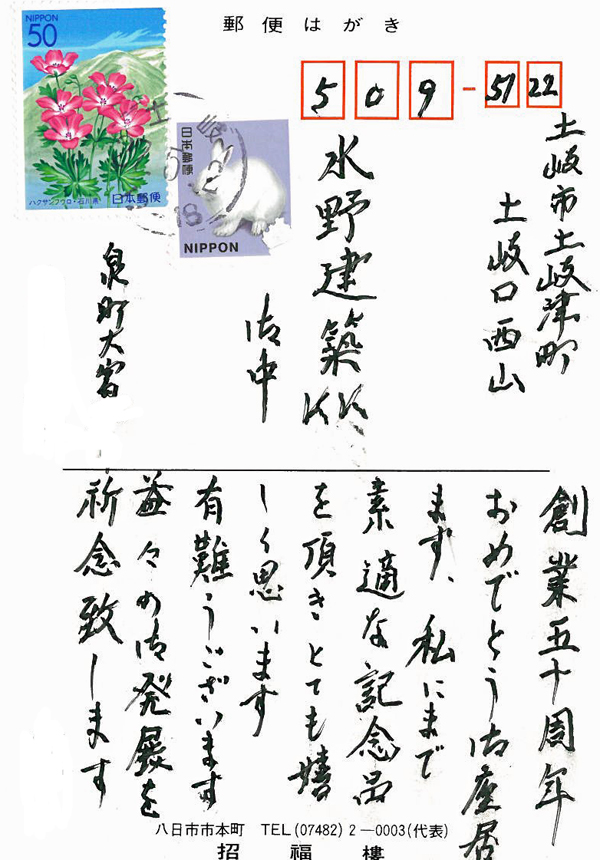 郵便はがき
NIPPON
50
ハクサンフウロ・石川県
日本郵便
日本郵便
NIPPON
18
509-5122
土岐市土岐津町
土岐口西山
水野建築KK
御中
泉町大富
創業五十周年
おめでとう御座居
ます、私にまで
素適な記念品
を頂きとても嬉
しく思います
有難うございます
益々の御発展を
祈念致します
八日市市本町 TEL(07482)2―0003(代表)
招福樓